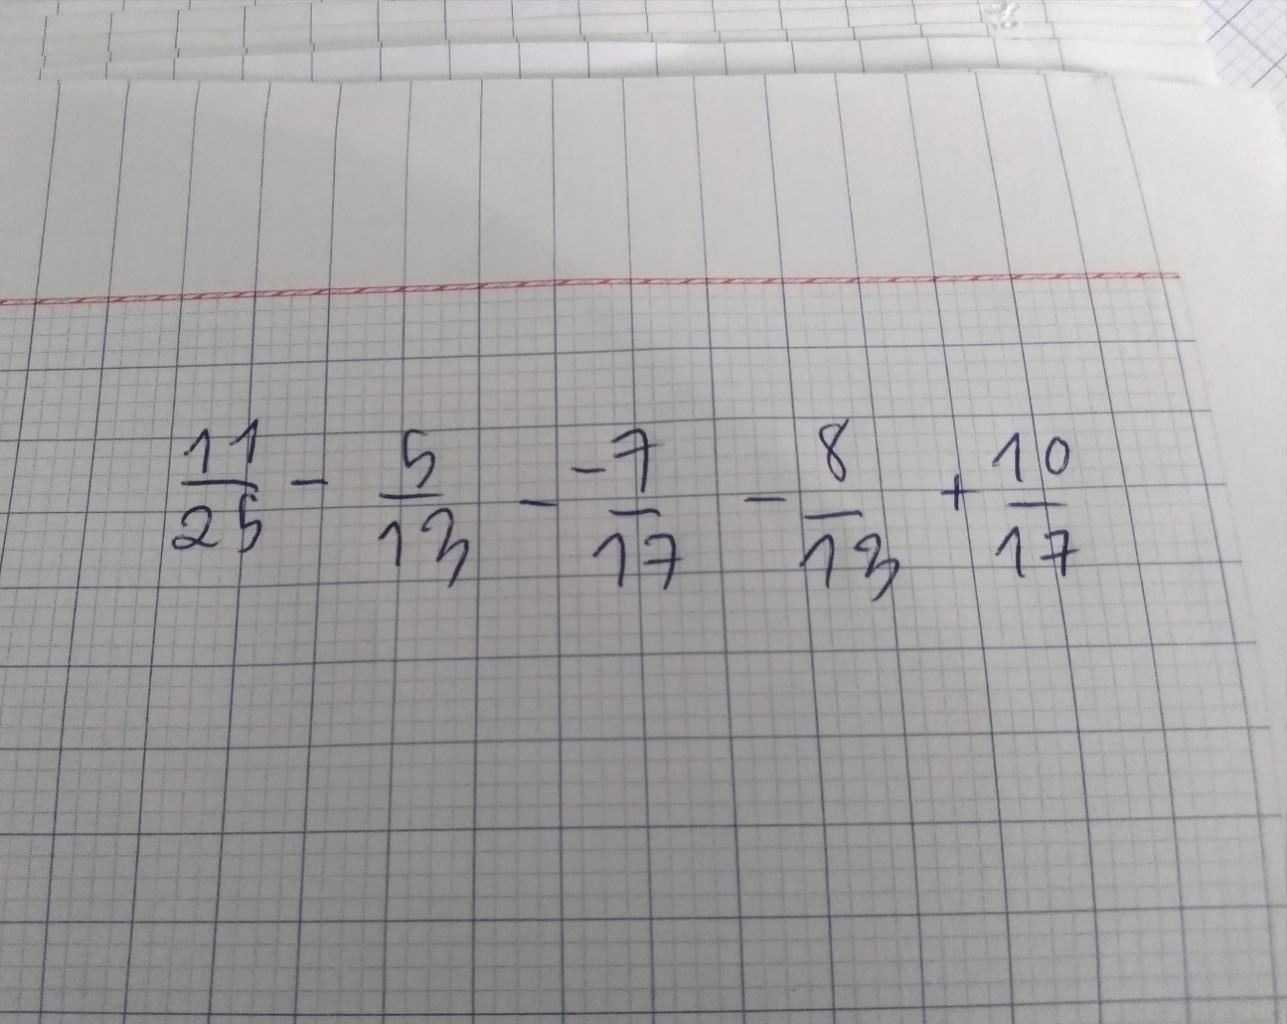 11/25 - 5/13 - -7/17 - 8/13 + 10/17